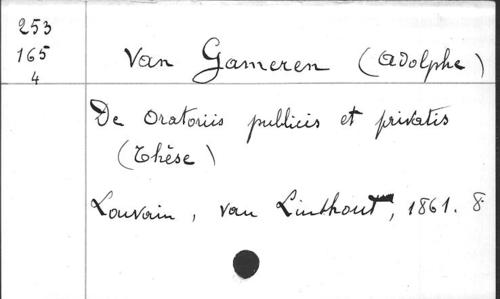 253
165
4
Van Gameren (Adolphe)
De oratoriis publicis et privatis
(Thèse)
Louvain, van Linthout, 1861. 8°